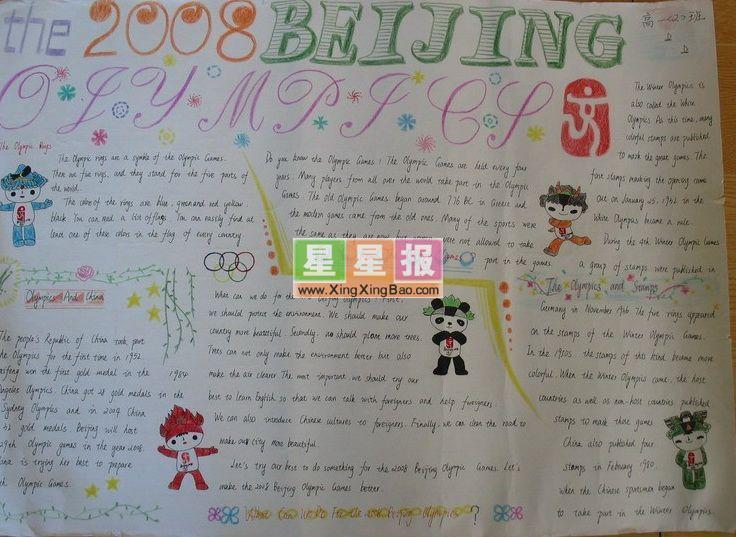 the 2008 BEIJING
OLYMPICS
高一(2)班
The Olympic Rings
The Olympic rings are a symble of the Olympic Games.
There are five rings, and they stand for the five parts of
the world.
The colors of the rings are blue, green and red yellow
black. You can read a list of flags. You can easily find at
least one of these colors in the flag of every country.
Do you know the Olympic Games? The Olympic Games are held every four
years. Many players from all over the world take part in the Olympic
Games. The old Olympic Games began around 776 BC in Greece and
the modern games came from the old ones. Many of the sports were
the same as they are now but were not allowed to take
part in the games.
The Winter Olympics is
also called the White
Olympics. At this time, many
colorful stamps are published
to mark the great games. The
first stamps marking the opening came
out on January 25, 1932 in the
White Olympics became a rule.
During the 4th Winter Olympic Games
a group of stamps were published in
The Olympics and Stamps
Germany in November 1936. The five rings appeared
on the stamps of the Winter Olympic Games.
In the 1950s the stamps of this kind became more
colorful. When the Winter Olympics came, the host
countries as well as non-host countries published
stamps to mark those games.
China also published four
stamps in February 1980
when the Chinese sportsmen began
to take part in the Winter Olympics.
星星报
www.XingXingBao.com
Olympics And China
The people's Republic of China took part
the Olympics for the first time in 1952.
won the first gold medal in the 1984
Angeles Olympics. China got 28 gold medals in the
Sydney Olympics and in 2004 China
gold medals. Beijing will host
29th Olympic games in the year 2008.
China is trying her best to prepare
Olympic Games.
What can we do for the Beijing Olympics? First,
we should protect the environment. We should make our
country more beautiful. Secondly, we should plant more trees.
Trees can not only make the environment better but also
make the air clearer. The most important, we should try our
best to learn English so that we can talk with foreigners and help foreigners.
We can also introduce Chinese cultures to foreigners. Finally, we can clean the road to
make our city more beautiful.
Let's try our best to do something for the 2008 Beijing Olympic Games. Let's
make the 2008 Beijing Olympic Games better.
What Can We Do For the 2008 Beijing Olympics?